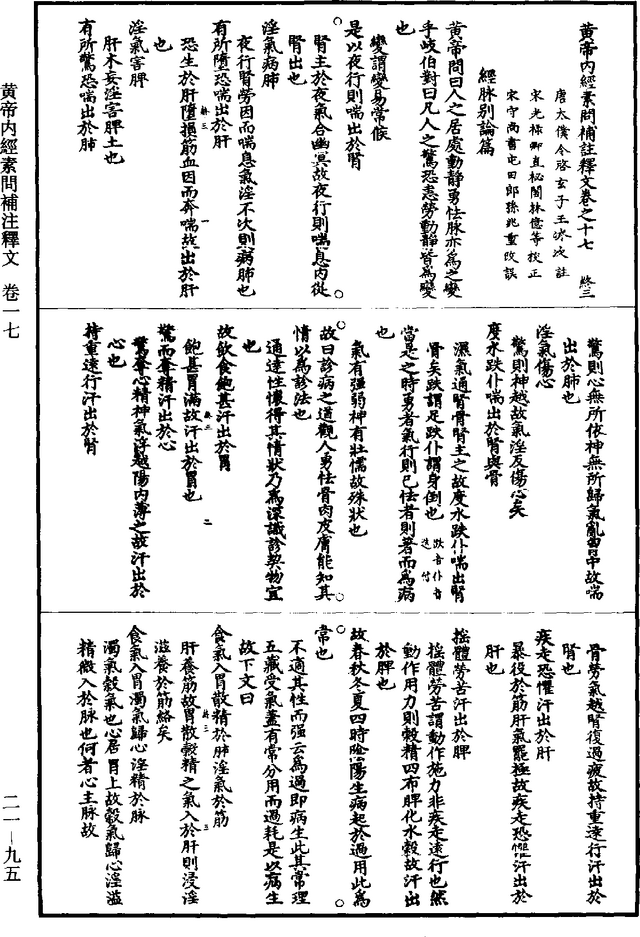 黄帝內經素問補註釋文卷之十七　終三
唐太僕令啓玄子王冰次註
宋光祿卿直秘閣林億等校正
宋守尚書屯田郎孫兆重改誤
經脉別論篇
黃帝問曰人之居處動靜勇怯脉亦爲之變
乎岐伯對曰凡人之驚恐恚勞動靜皆爲變
也
變謂變易常候
是以夜行則喘出於腎
腎主於夜氣合幽冥故夜行則喘息內從
腎出也
淫氣病肺
夜行腎勞因而喘息氣淫不次則病肺也
有所墮恐喘出於肝
恐生於肝墮損筋血因而奔喘故出於肝
也
淫氣害脾
肝木妄淫害脾土也
有所驚恐喘出於肺
驚則心無所依神無所歸氣亂胷中故喘
出於肺也
淫氣傷心
驚則神越故氣淫反傷心矣
度水跌仆喘出於腎與骨
濕氣通腎骨腎主之故度水跌仆喘出腎
骨矣跌謂足跌仆謂身倒也 跌音迭仆音付
當是之時勇者氣行則已怯者則著而爲病
也
氣有强弱神有壯懦故殊狀也
故曰診病之道觀人勇怯骨肉皮膚能知其
情以爲診法也
通達性懷得其情狀乃爲深識診契物宜
也
故飲食飽甚汗出於胃
飽甚胃滿故汗出於胃也
驚而奪精汗出於心
驚奪心精神氣浮越陽內薄之故汗出於
心也
持重遠行汗出於腎
骨勞氣越腎復過疲故持重遠行汗出於
腎也
疾走恐懼汗出於肝
暴役於筋肝氣罷極故疾走恐懼汗出於
肝也
搖體勞苦汗出於脾
搖體勞苦謂動作施力非疾走遠行也然
動作用力則穀精四布脾化水穀故汗出
於脾也
故春秋冬夏四時陰陽生病起於過用此爲
常也
不適其性而强云爲過卽病生此其常理
五藏受氣蓋有常分用而過耗是以病生
故下文曰
食氣入胃散精於肝淫氣於筋
肝養筋故胃散穀精之氣入於肝則浸淫
滋養於筋絡矣
食氣入胃濁氣歸心淫精於脉
濁氣穀氣也心居胃上故穀氣歸心淫溢
精微入於脉也何者心主脉故
黄帝内經素問補注釋文　卷一七
二一—九五